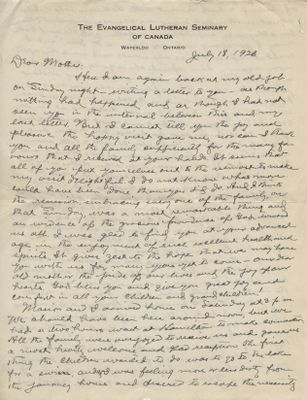 THE EVANGELICAL LUTHERAN SEMINARY
OF CANADA
WATERLOO ONTARIO
July 18, 192
Dear Mother:
Here I am again back at my old job
on Sunday night - writing a letter to you - as though
nothing had happened and as though I had not
seen you in the interval between this and my
last letter. But I cannot tell you the joy and
pleasure the happy visit gave me, nor can I thank
you and all the family sufficiently for the many fa-
vours that I received at your hands. It seems that
all of you put yourselves out to the utmost to make
my visit delightful. I do not know what more
could have been done than you did do. And I think
the reunion, embracing every one of the family on
that Sunday, was a most remarkable thing and
an evidence of the gracious providence of God toward
us all. I was glad to find you at your advanced
age in the enjoyment of such excellent health and
spirits. It gives zest to the hope that we may have
you with us for many years to come - our dear
old mother, the pride of our lives and the joy of our
hearts. God bless you and give you great joy and
comfort in all your children and grandchildren!
Marion and I arrived home on Tuesday at 3 p.m.
We should have been here around noon, but we
had a two hours wait at Hamilton to make connection.
All the family were overjoyed to receive us and gave us
a most hearty welcome and glad reception. The first
thing the children wanted to do was to go to the lake
for a swim, and we were feeling more or less dusty from
the journey home and desired to escape the